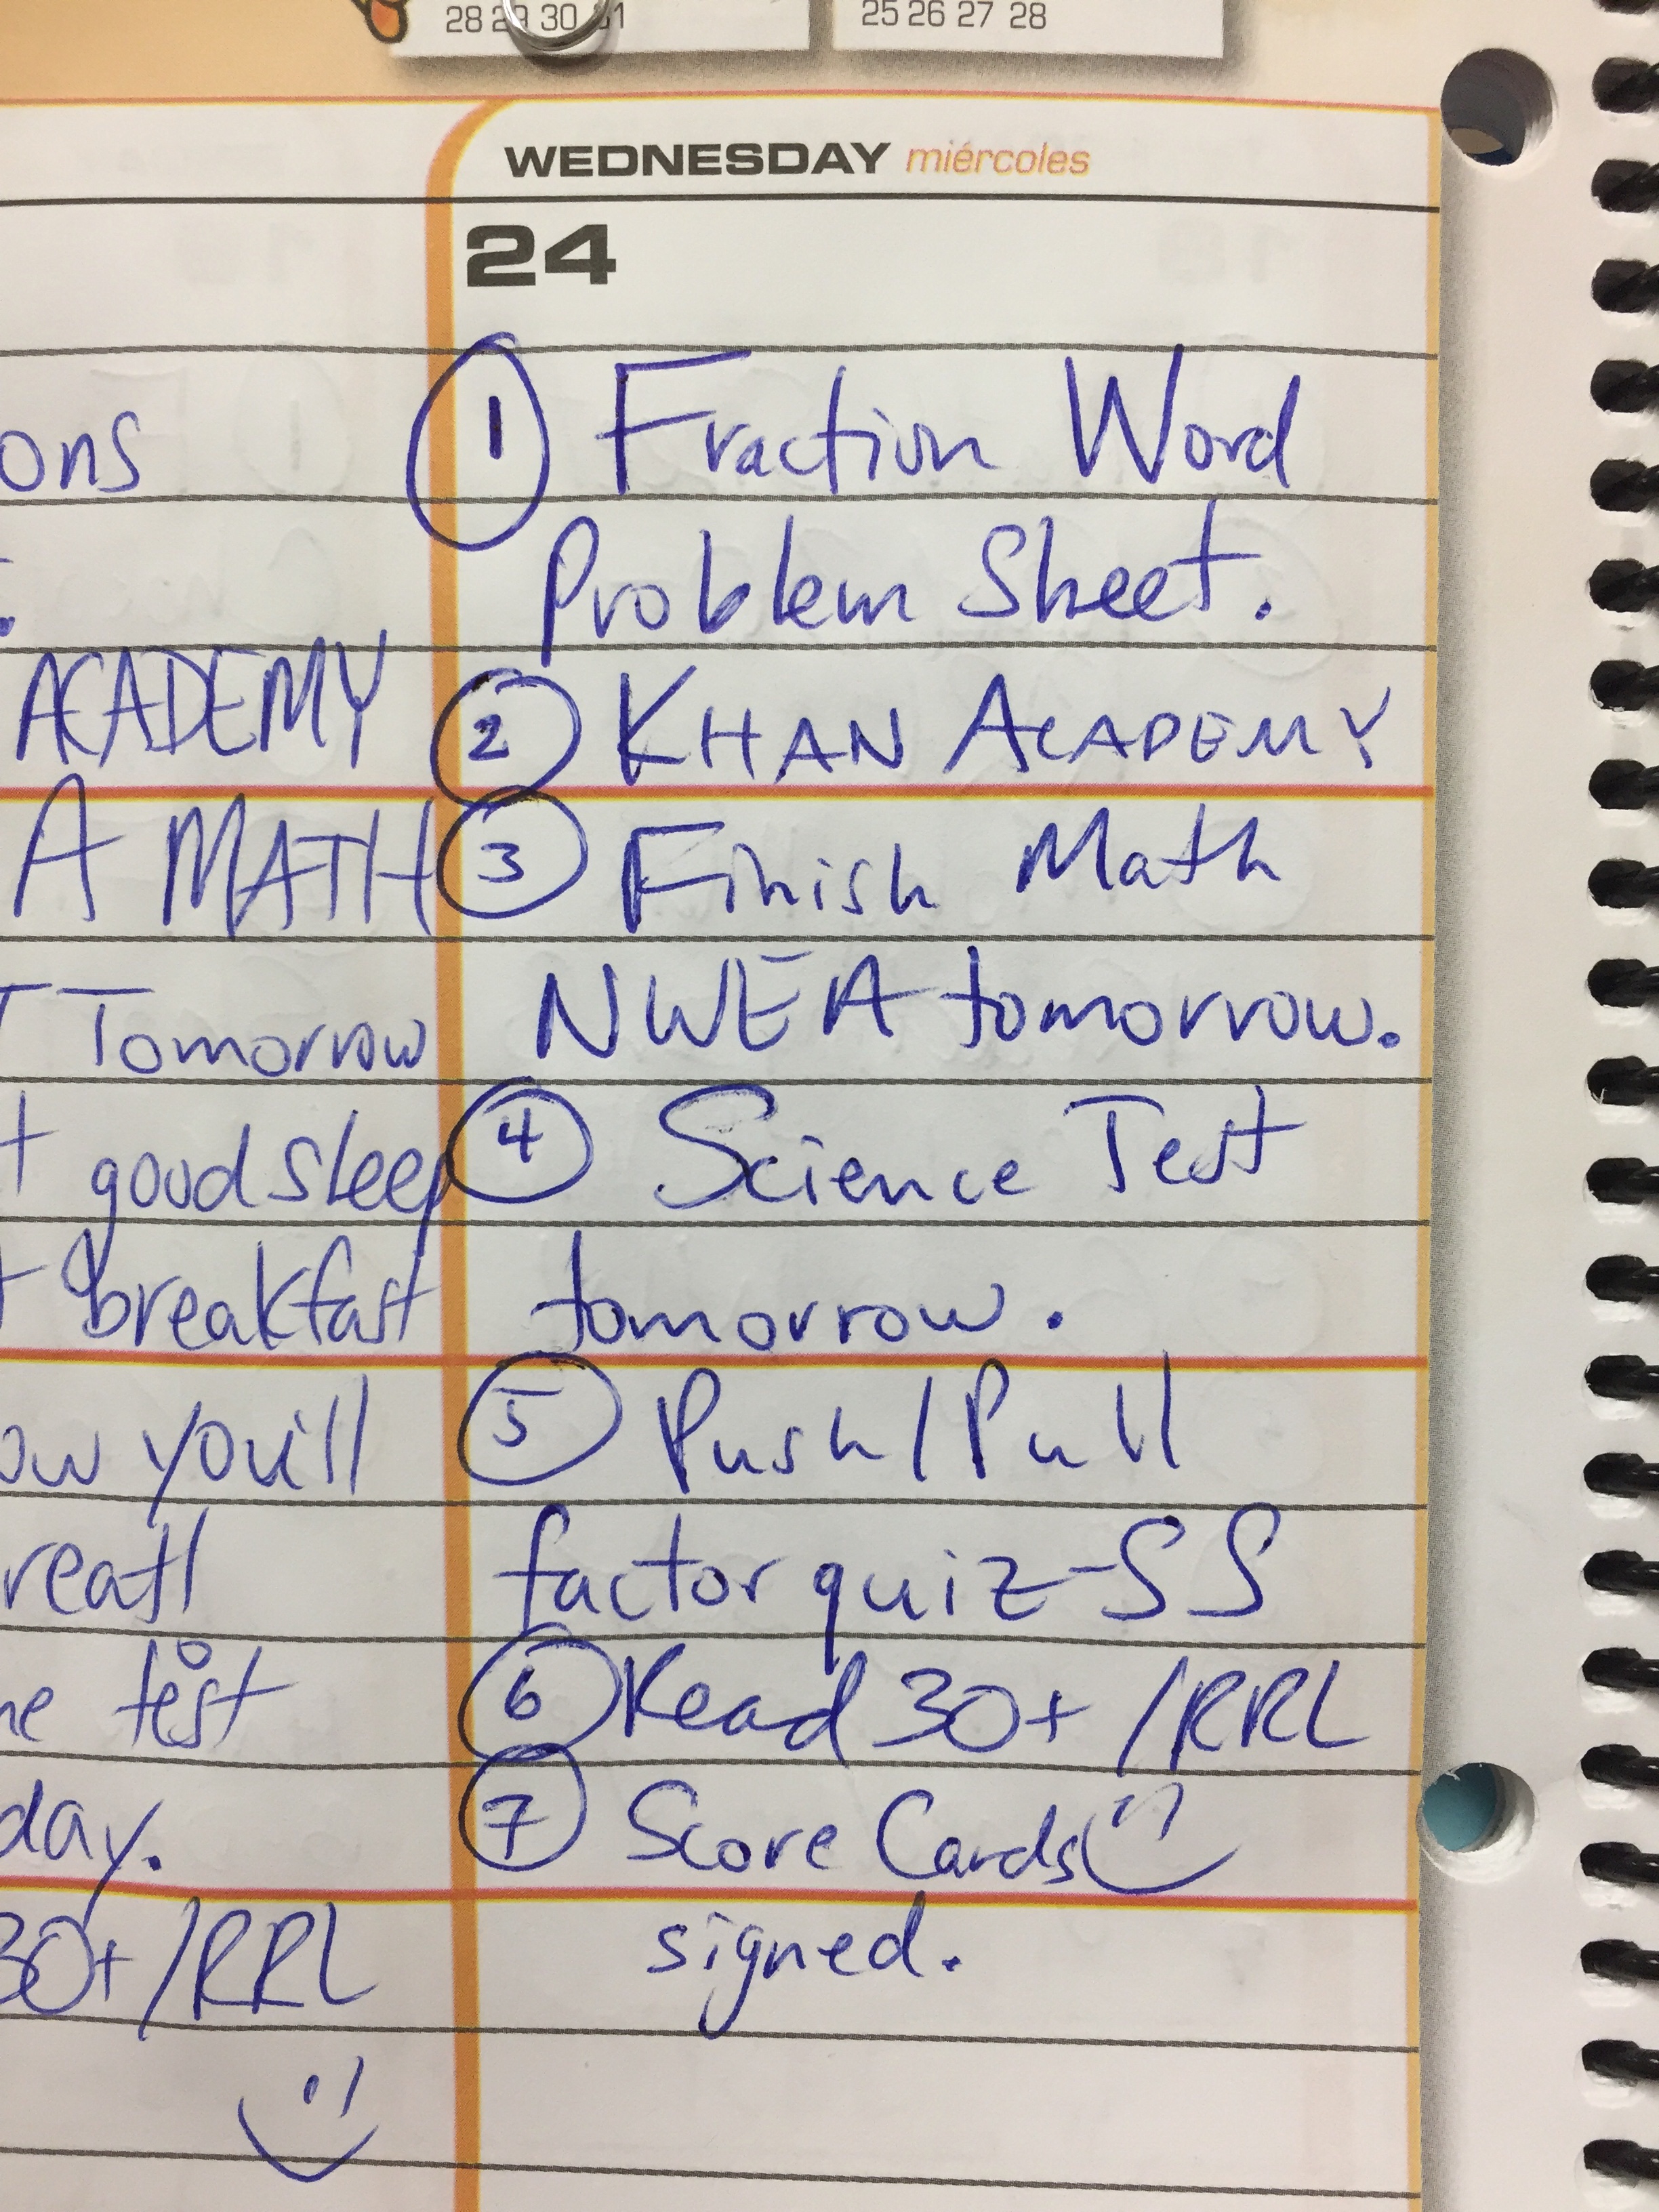 28 29 30 31
25 26 27 28
WEDNESDAY miércoles
24
ons
ACADEMY
A MATH
T Tomorrow
t good sleep
t breakfast
ow you'll
reat!
ne test
day.
30+ /RRL
1 Fraction Word
Problem Sheet.
2 KHAN ACADEMY
3 Finish Math
NWEA tomorrow.
4 Science Test
tomorrow.
5 Push/Pull
factor quiz-SS
6 Read 30+ /RRL
7 Score Cards
signed.